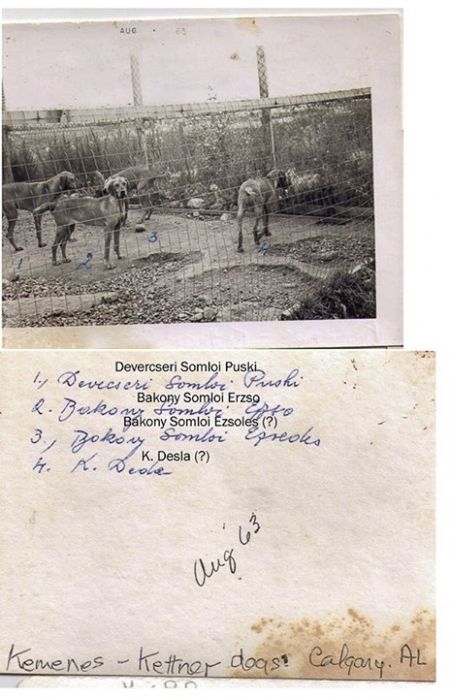 AUG • 63
1 2 3 4
Devercseri Somloi Puski
1., Devecseri Somloi Puski
Bakony Somloi Erzso
2. Bakony Somloi Erzso
Bakony Somloi Ezsoles (?)
3., Bakony Somloi
K. Desla (?)
4. K.
Aug 63
Kemenes - Kettner dogs: Calgary. AL